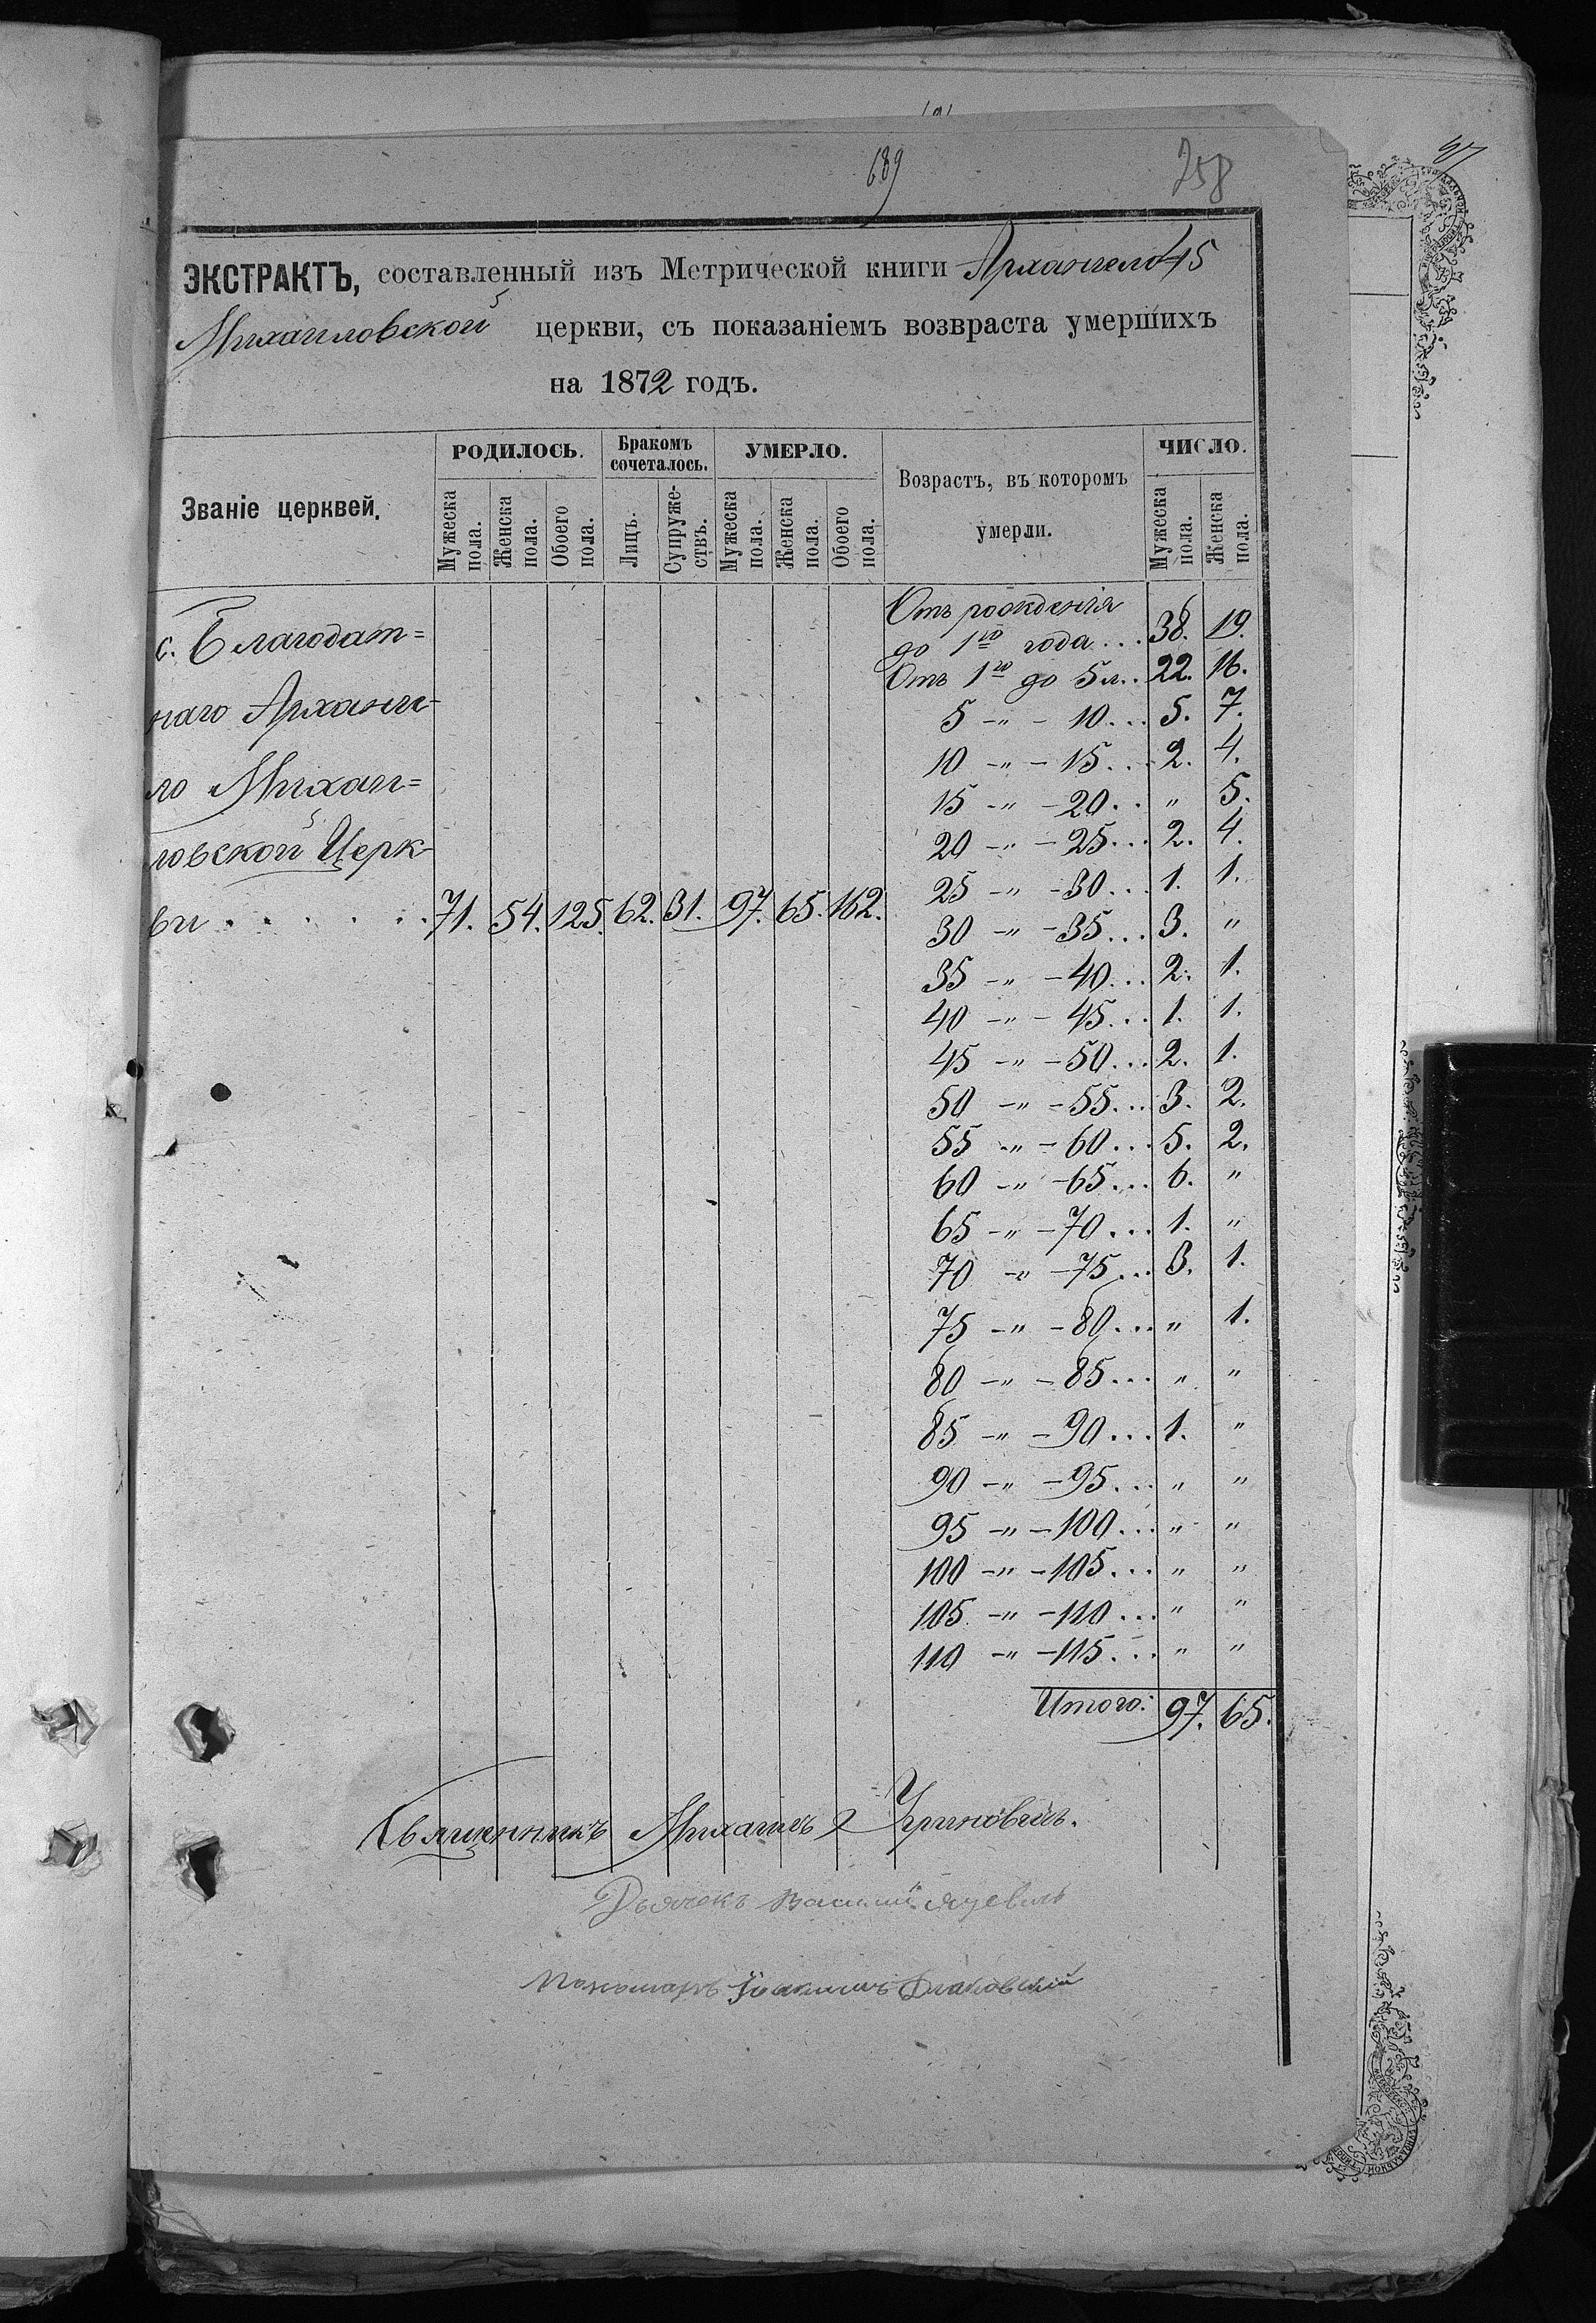 689
258
ЭКСТРАКТЪ, составленный изъ Метрической книги Архангело 45
Михаиловской церкви, съ показаніемъ возвраста умершихъ
на 1872 годъ.
Званіе церквей.
РОДИЛОСЬ.
Мужеска пола.
Женска пола.
Обоего пола.
Бракомъ сочеталось.
Лицъ.
Супружествъ.
УМЕРЛО.
Мужеска пола.
Женска пола.
Обоего пола.
Возрастъ, въ которомъ
умерли.
ЧИСЛО.
Мужеска пола.
Женска пола.
с. Благодат=
наго Арханге-
ло Михаи=
ловской Церк-
ви . . . . . . 71. 54. 125. 62. 31. 97. 65. 162.
Отъ рожденія
до 1го года . . . 38. 19.
Отъ 1го до 5 л. . 22. 16.
5 -„- 10 . . . 5. 7.
10 -„- 15 . . . 2. 4.
15 -„- 20 . . . „ 5.
20 -„- 25 . . . 2. 4.
25 -„- 30 . . . 1. 1.
30 -„- 35 . . . 3. „
35 -„- 40 . . . 2. 1.
40 -„- 45 . . . 1. 1.
45 -„- 50 . . . 2. 1.
50 -„- 55 . . . 3. 2.
55 -„- 60 . . . 5. 2.
60 -„- 65 . . . 6. „
65 -„- 70 . . . 1. „
70 -„- 75 . . . 3. 1.
75 -„- 80 . . . „ 1.
80 -„- 85 . . . „ „
85 -„- 90 . . . 1. „
90 -„- 95 . . . „ „
95 -„- 100 . . . „ „
100 -„- 105 . . . „ „
105 -„- 110 . . . „ „
110 -„- 115 . . . „ „
Итого: 97. 65.
Священникъ Михаилъ
Дьячекъ Василій
Пономарь Іоакимъ